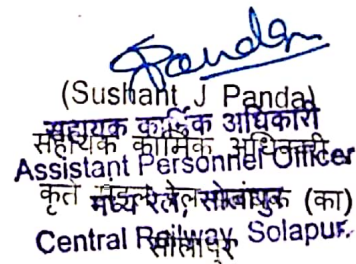 Panda
(Sushant J Panda)
सहायक कार्मिक अधिकारी
सहायक कार्मिक अधिकारी
Assistant Personnel Officer
कृते मंडल रेल (का)
मध्य रेल, सोलापुर
Central Railway, Solapur.
सोलापुर